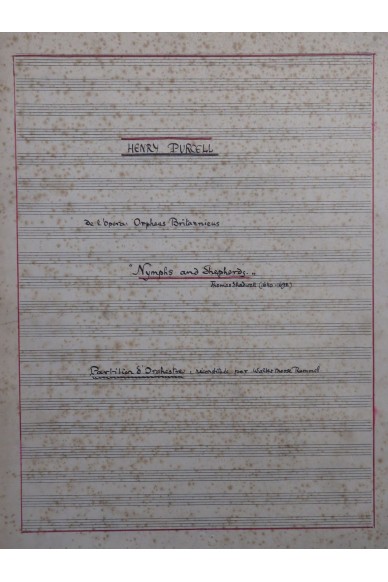 HENRY PURCELL
De l'Opera: Orpheus Britannicus
"Nymphs and Shepherds"
Thomas Shadwell
Partition d'Orchestre, par Walter